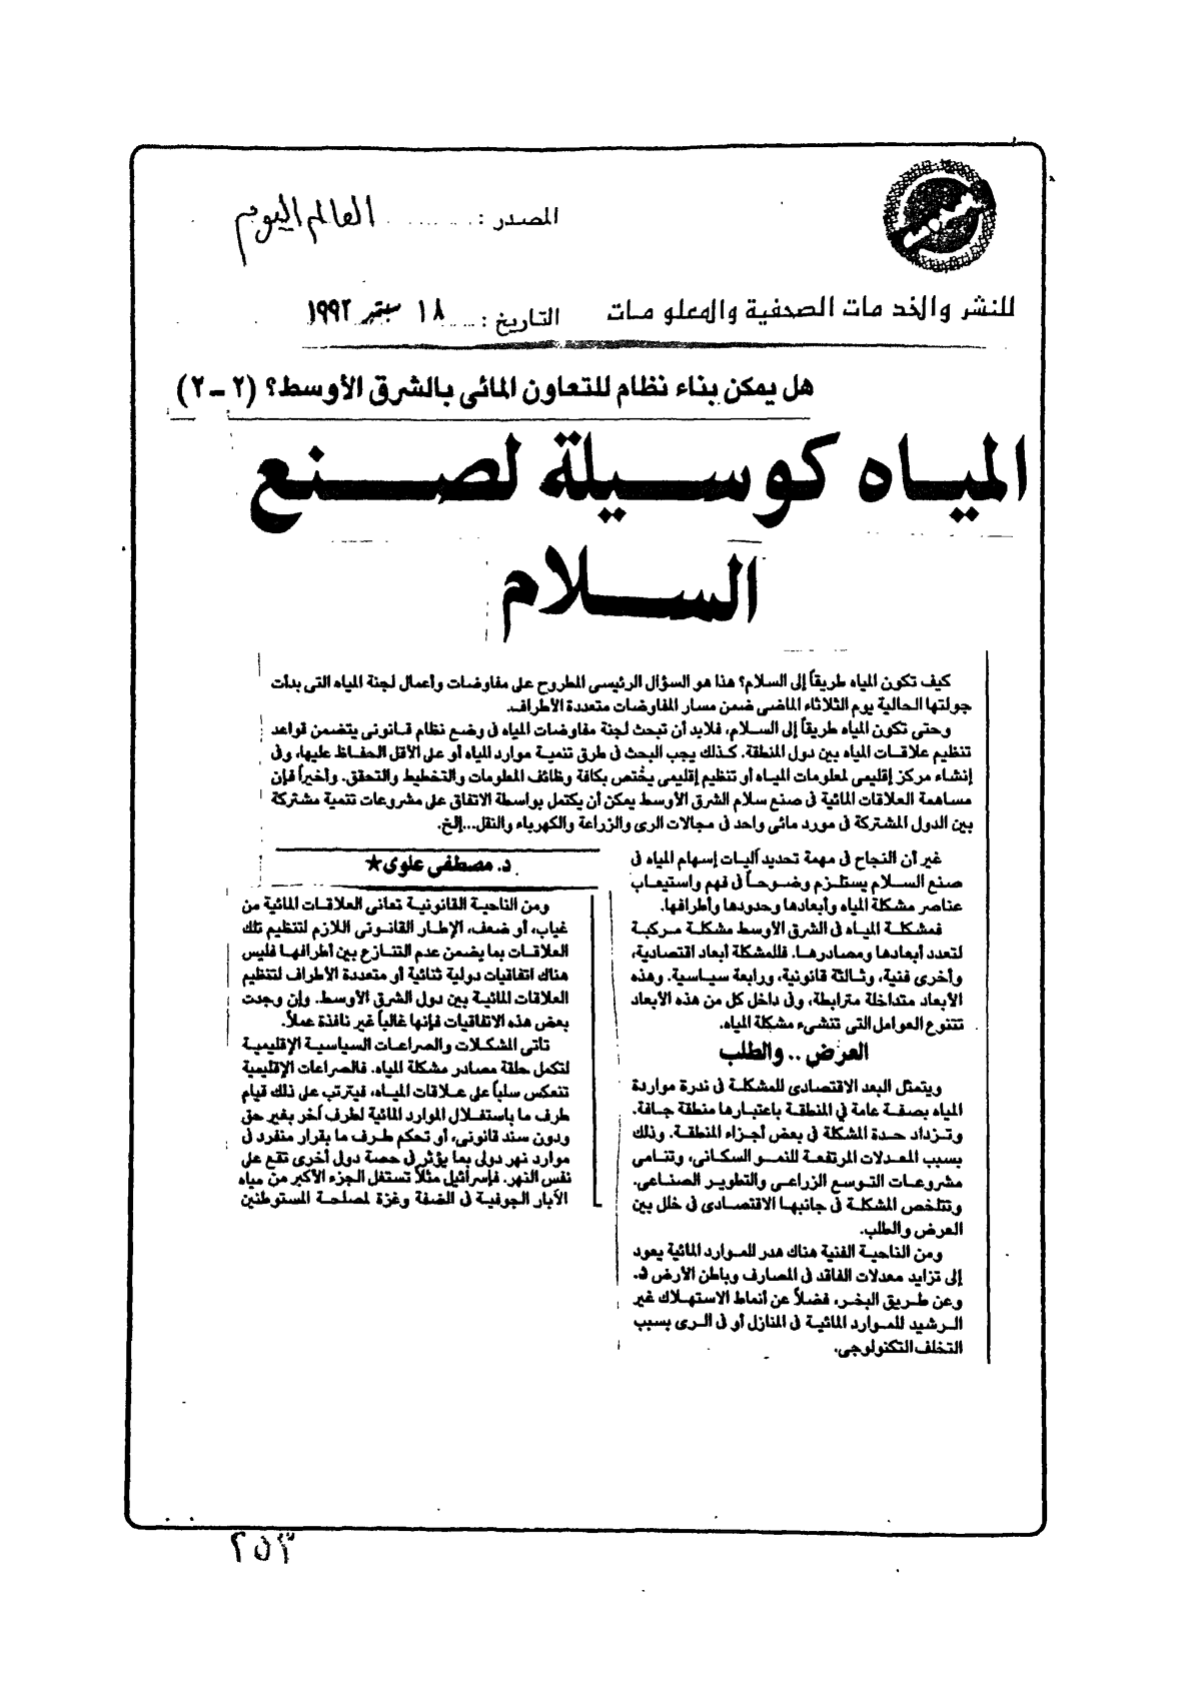 المصدر : ........ العالم اليوم
للنشر والخدمات الصحفية والمعلومات
التاريخ : ..... ١٨ سبتمبر ١٩٩٢
هل يمكن بناء نظام للتعاون المائى بالشرق الأوسط؟ (٢ - ٢)
المياه كوسيلة لصنع
السلام
كيف تكون المياه طريقاً إلى السلام؟ هذا هو السؤال الرئيسى المطروح على مفاوضات وأعمال لجنة المياه التى بدأت
جولتها الحالية يوم الثلاثاء الماضى ضمن مسار المفاوضات متعددة الأطراف.
وحتى تكون المياه طريقاً إلى السلام، فلابد أن تبحث لجنة مفاوضات المياه فى وضع نظام قانونى يتضمن قواعد
تنظيم علاقات المياه بين دول المنطقة. كذلك يجب البحث فى طرق تنمية موارد المياه أو على الأقل الحفاظ عليها، وفى
إنشاء مركز إقليمى لمعلومات المياه أو تنظيم إقليمى يختص بكافة وظائف المعلومات والتخطيط والتحقق. وأخيراً فإن
مساهمة العلاقات المائية فى صنع سلام الشرق الأوسط يمكن أن يكتمل بواسطة الاتفاق على مشروعات تنمية مشتركة
بين الدول المشتركة فى مورد مائى واحد فى مجالات الرى والزراعة والكهرباء والنقل...إلخ.
غير أن النجاح فى مهمة تحديد آليات إسهام المياه فى
صنع السلام يستلزم وضوحاً فى فهم واستيعاب
عناصر مشكلة المياه وأبعادها وحدودها وأطرافها.
فمشكلة المياه فى الشرق الأوسط مشكلة مركبة
لتعدد أبعادها ومصادرها. فللمشكلة أبعاد اقتصادية،
وأخرى فنية، وثالثة قانونية، ورابعة سياسية. وهذه
الأبعاد متداخلة مترابطة، وفى داخل كل من هذه الأبعاد
تتنوع العوامل التى تنشىء مشكلة المياه.
العرض .. والطلب
ويتمثل البعد الاقتصادى للمشكلة فى ندرة مواردة
المياه بصفة عامة في المنطقة باعتبارها منطقة جافة.
وتزداد حدة المشكلة فى بعض أجزاء المنطقة. وذلك
بسبب المعدلات المرتفعة للنمو السكانى، وتنامى
مشروعات التوسع الزراعى والتطوير الصناعى.
وتتلخص المشكلة فى جانبها الاقتصادى فى خلل بين
العرض والطلب.
ومن الناحية الفنية هناك هدر للموارد المائية يعود
إلى تزايد معدلات الفاقد فى المصارف وباطن الأرض
وعن طريق البخر، فضلاً عن أنماط الاستهلاك غير
الرشيد للموارد المائية فى المنازل أو فى الرى بسبب
التخلف التكنولوجى.
د. مصطفى علوى★
ومن الناحية القانونية تعانى العلاقات المائية من
غياب، أو ضعف، الإطار القانونى اللازم لتنظيم تلك
العلاقات بما يضمن عدم التنازع بين أطرافها فليس
هناك اتفاقيات دولية ثنائية أو متعددة الأطراف لتنظيم
العلاقات المائية بين دول الشرق الأوسط. وإن وجدت
بعض هذه الاتفاقيات فإنها غالباً غير نافذة عملاً.
تأتى المشكلات والصراعات السياسية الإقليمية
لتكمل حلقة مصادر مشكلة المياه. فالصراعات الإقليمية
تنعكس سلباً على علاقات المياه، فيترتب على ذلك قيام
طرف ما باستغلال الموارد المائية لطرف آخر بغير حق
ودون سند قانونى، أو تحكم طرف ما بقرار منفرد فى
موارد نهر دولى بما يؤثر في حصة دول أخرى تقع على
نفس النهر. فإسرائيل مثلاً تستغل الجزء الأكبر من مياه
الآبار الجوفية فى الضفة وغزة لمصلحة المستوطنين
٢٥٣